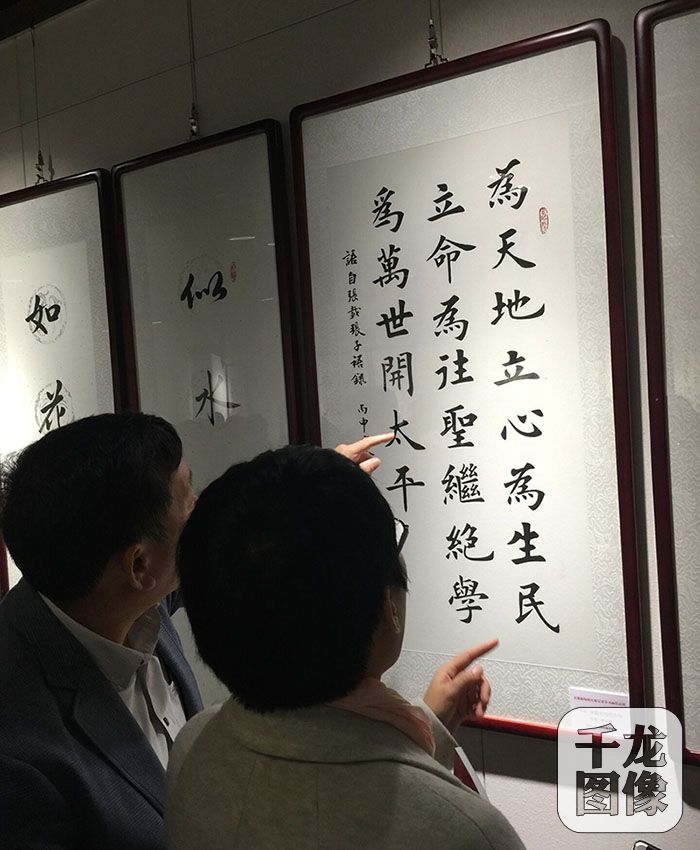 為天地立心為生民
立命為往聖繼絕學
爲萬世開太平
語自張載張子語錄 丙申
似水
如花
千龙
图像